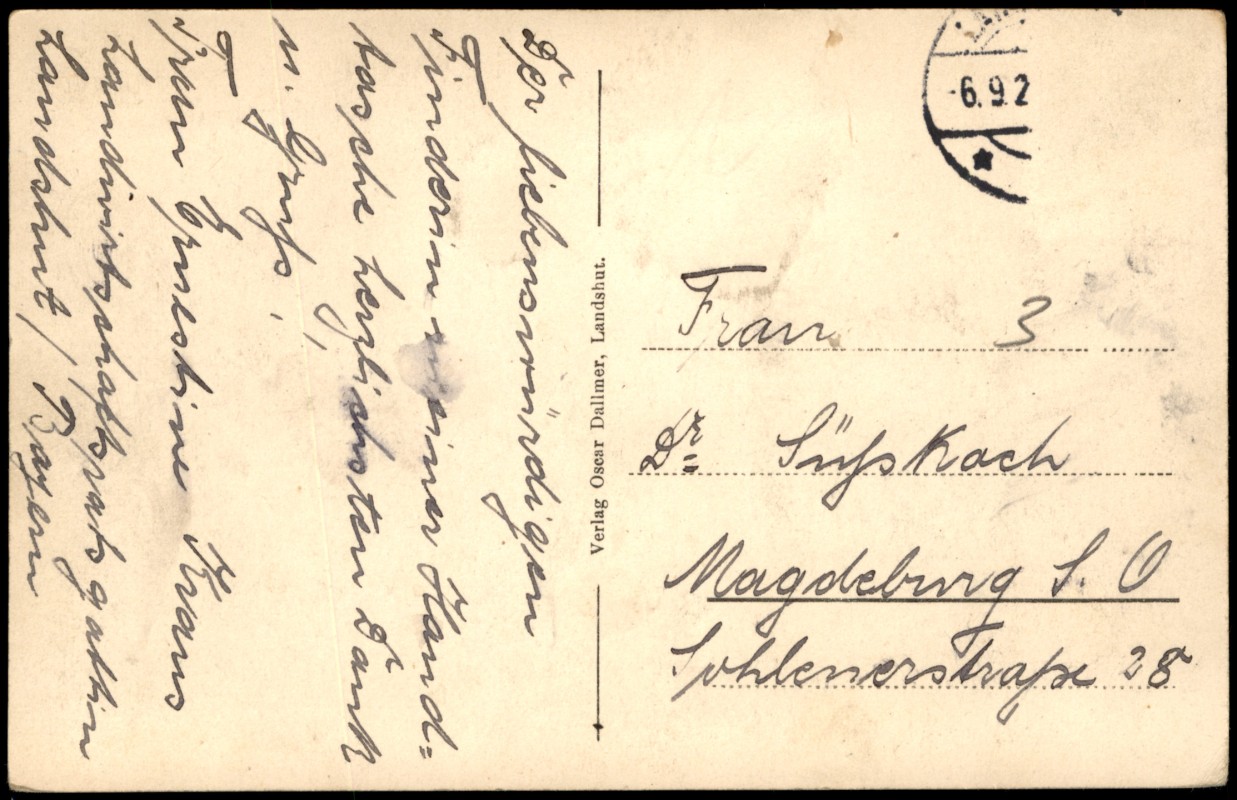 Der liebenswürdigen
Finderin meiner Hand=
tasche herzlichsten Dank
u. Gruß,
Frau Ernestine Kraus
Landwirtschaftsratsgattin
Landshut, Bayern
Verlag Oscar Dallmer, Landshut.
-6.9.2
Frau 3
Dr. Süßkoch
Magdeburg S. O
28